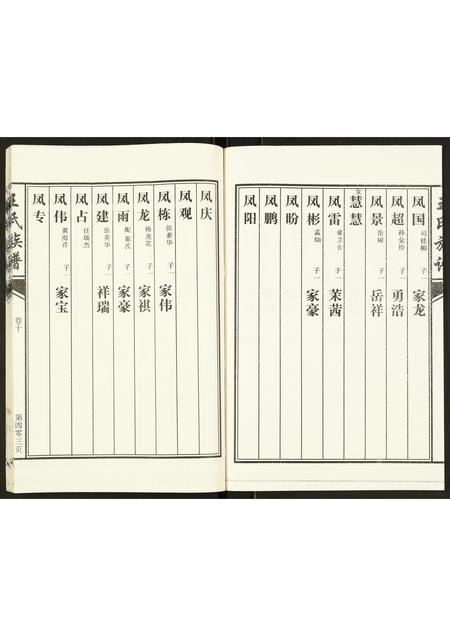 凤国 司桂柳 子一 家龙
凤超 孙金桥 子一 勇浩
凤景 岳丽 子一 岳祥
女 慧慧
凤雷 子一 茉茜
凤彬 孟灿 子一 家豪
凤盼
凤鹏
凤阳
凤庆
凤观
凤栋 张素华 子一 家伟
凤龙 杨尧花 子一 家祺
凤雨 配崔氏 子一 家豪
凤建 张美华 子一 祥瑞
凤占 任瑞杰
凤伟 黄海芹 子一 家宝
凤专
王氏族谱
卷十
第四零三页